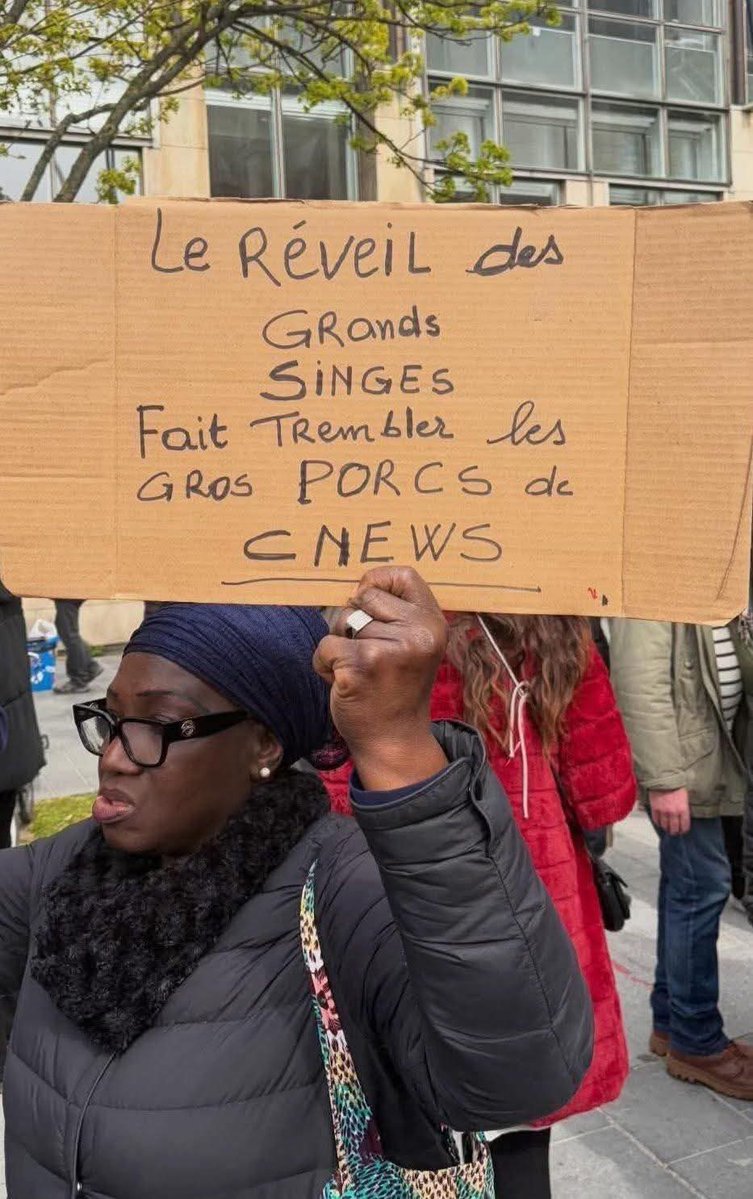 Le Réveil des
Grands
SINGES
Fait Trembler les
GROS PORCS de
CNEWS